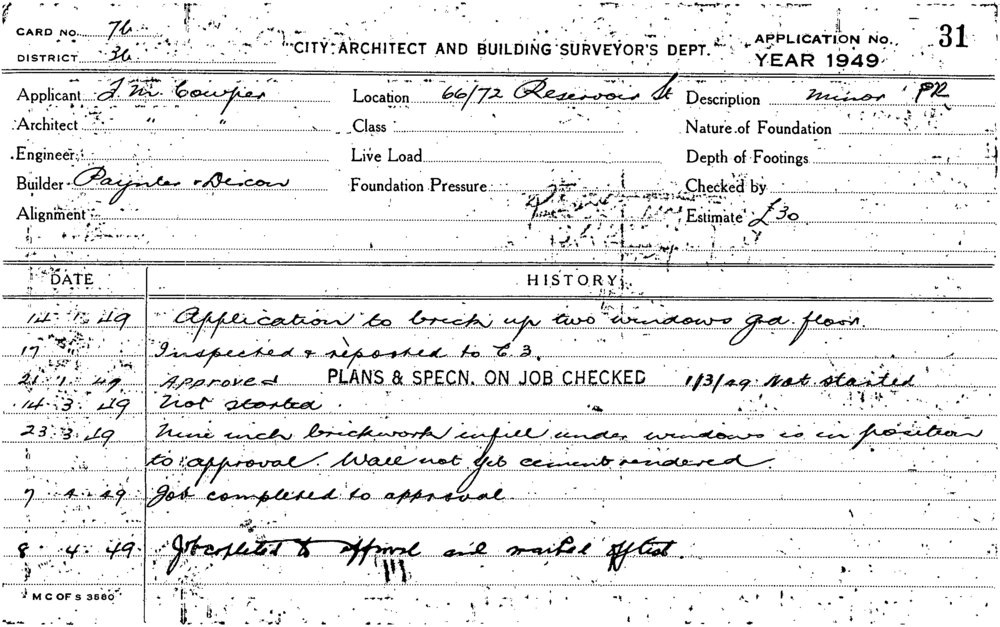 CARD NO. 76
DISTRICT 36
CITY ARCHITECT AND BUILDING SURVEYOR'S DEPT.
APPLICATION NO. 31
YEAR 1949
Applicant J. M. Cowper
Location 66/72 Reservoir St
Description Minor PR
Architect " "
Class
Nature of Foundation
Engineer
Live Load
Depth of Footings
Builder Paynter & Dixon
Foundation Pressure
Checked by
Alignment
Estimate £30
DATE HISTORY
14 . 1 . 49 Application to brick up two windows grd. floor.
17 " Inspected & reported to C3.
21 . 1 . 49 Approved PLANS & SPECN. ON JOB CHECKED 1/3/49 Not started
14 . 3 . 49 Not started
23 . 3 . 49 Nine inch brickwork infill under windows is in position
to approval Wall not yet cement rendered
7 . 4 . 49 Job completed to approval
8 . 4 . 49 Job copleted to approval and marked off
M C OF S 3580